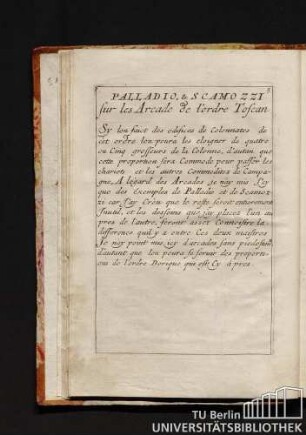 PALLADIO, & SCAMOZZI
sur les Arcade de l'ordre Toscan
Sy lon faict des edifices de Colonnates de
cet ordre lon poura les eloigner de quattre
ou Cinq grosseurs de la Colonne, d'autan que
cette proportion sera Commode pour passer les
chariots et les autres Commoditez de Campa=
gne, A legard des Arcades je nay mis Icy
que des exemples de Palladio et de Scamoz
zi car Jay Creu que le reste seroit entierement
Inutil, et les desseins que jay places l'un au
pres de l'autre, feront assez Connoistre la
difference quil y a entre Ces deux maistres
Je nay point mis icy d'arcades sans piedestal
d'autant que lon poura se servir des proporti=
ons de l'ordre Dorique qui est Cy apres.
TU Berlin
UNIVERSITÄTSBIBLIOTHEK